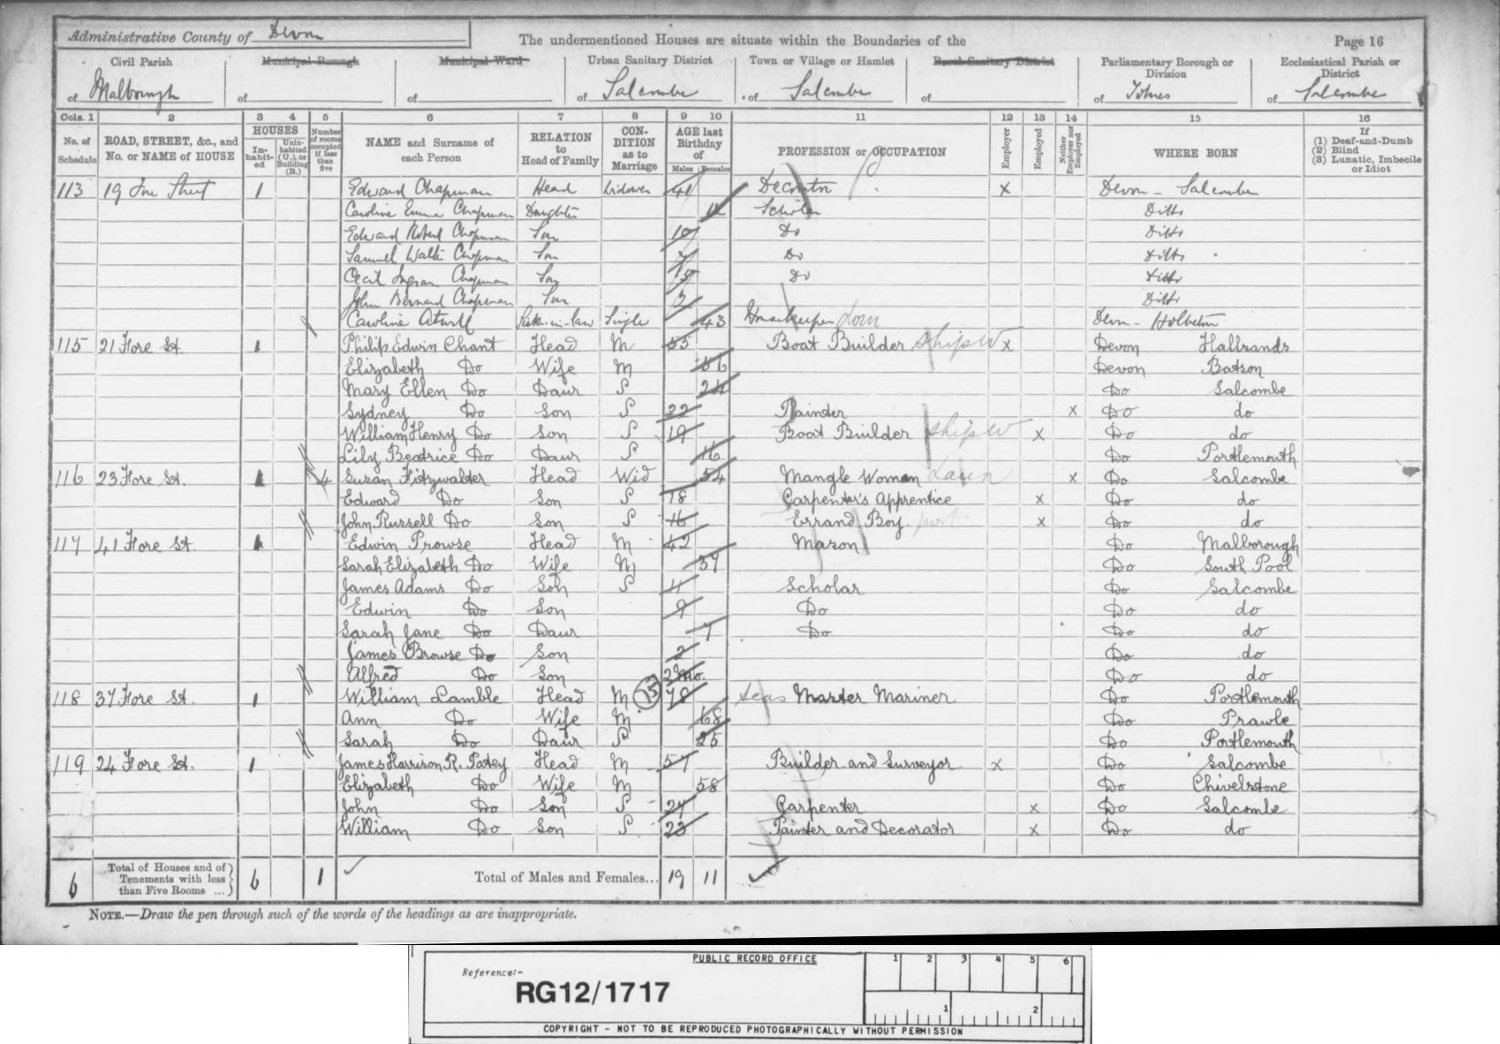 Administrative County of Devon
The undermentioned Houses are situate within the Boundaries of the
Page 16
Civil Parish Municipal Borough Municipal Ward Urban Sanitary District Town or Village or Hamlet Rural Sanitary District Parliamentary Borough or Division Ecclesiastical Parish or District
of Malborough of of of Salcombe of Salcombe of of Totnes of Salcombe
Cols. 1 2 3 4 5 6 7 8 9 10 11 12 13 14 15 16
No. of Schedule ROAD, STREET, &c., and No. or NAME of HOUSE HOUSES In-habit-ed Unin-habited (U.), or Building (B.) Number of rooms occupied if less than five NAME and Surname of each Person RELATION to Head of Family CON-DITION as to Marriage AGE last Birthday of Males Females PROFESSION or OCCUPATION Employer Employed Neither Employer nor Employed WHERE BORN If (1) Deaf-and-Dumb (2) Blind (3) Lunatic, Imbecile or Idiot
113 19 Fore Street 1 Edward Chapman Head Widower 41 Decorator x Devon - Salcombe
Caroline Emma Chapman Daughter 12 Scholar Ditto
Edward Robert Chapman Son 10 Do Ditto
Samuel Walter Chapman Son 7 Do Ditto
Cecil Ingram Chapman Son 5 Do Ditto
John Bernard Chapman Son 3 Ditto
Caroline Sister-in-law Single 43 Housekeeper dom Devon - Holbeton
115 21 Fore St. 1 Philip Edwin Chant Head M 55 Boat Builder shipw x Devon Hallsands
Elizabeth Do Wife M 56 Devon Batson
Mary Ellen Do Daur S 24 Do Salcombe
Sydney Do Son S 22 Painter x Do do
William Henry Do Son S 19 Boat Builder shipw x Do do
Lily Beatrice Do Daur S 16 Do Portlemouth
116 23 Fore St. 1 4 Susan Fitzywalter Head Wid 54 Mangle Woman x Do Salcombe
Edward Do Son S 18 Carpenter's Apprentice x Do do
John Russell Do Son S 16 Errand Boy. port x Do do
117 41 Fore St. 1 Edwin Prowse Head M 42 Mason Do Malborough
Sarah Elizabeth Do Wife M 39 Do South Pool
James Adams Do Son S 11 Scholar Do Salcombe
Edwin Do Son 9 Do Do do
Sarah Jane Do Daur 7 Do Do do
James Browse Do Son 2 Do do
Alfred Do Son 2 Mo. Do do
118 37 Fore St. 1 William Lamble Head M 75 78 seas Master Mariner Do Portlemouth
Ann Do Wife M 68 Do Prawle
Sarah Do Daur S 25 Do Portlemouth
119 24 Fore St. 1 James Harrison R. Patey Head M 57 Builder and Surveyor x Do Salcombe
Elizabeth Do Wife M 58 Do Chivelstone
John Do Son S 24 Carpenter x Do Salcombe
William Do Son S 23 Painter and Decorator x Do do
6 Total of Houses and of Tenements with less than Five Rooms ... 6 1 Total of Males and Females... 19 11
NOTE.—Draw the pen through such of the words of the headings as are inappropriate.
PUBLIC RECORD OFFICE 1 2 3 4 5 6
Reference:-
RG12/1717
1 2
COPYRIGHT - NOT TO BE REPRODUCED PHOTOGRAPHICALLY WITHOUT PERMISSION